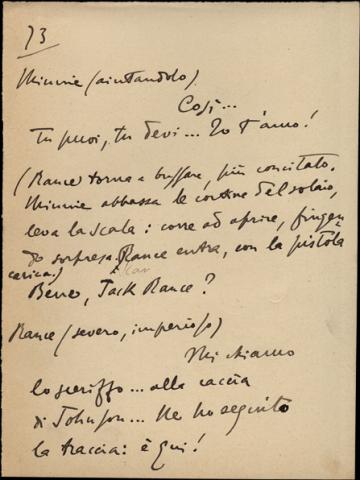 73
Minnie (aiutandolo)
Così...
Tu puoi, tu devi... Io t'amo!
(Rance torna a bussare, più concitato.
Minnie abbassa le cortine del solaio,
leva la scala: corre ad aprire, fingen
do sorpresa. Rance entra, con la pistola
carica.)
Bever, Jack Rance?
Rance (severo, imperioso)
Mi chiamo
lo sceriffo... alla caccia
di Johnson... Ne ho seguito
la traccia: è qui!